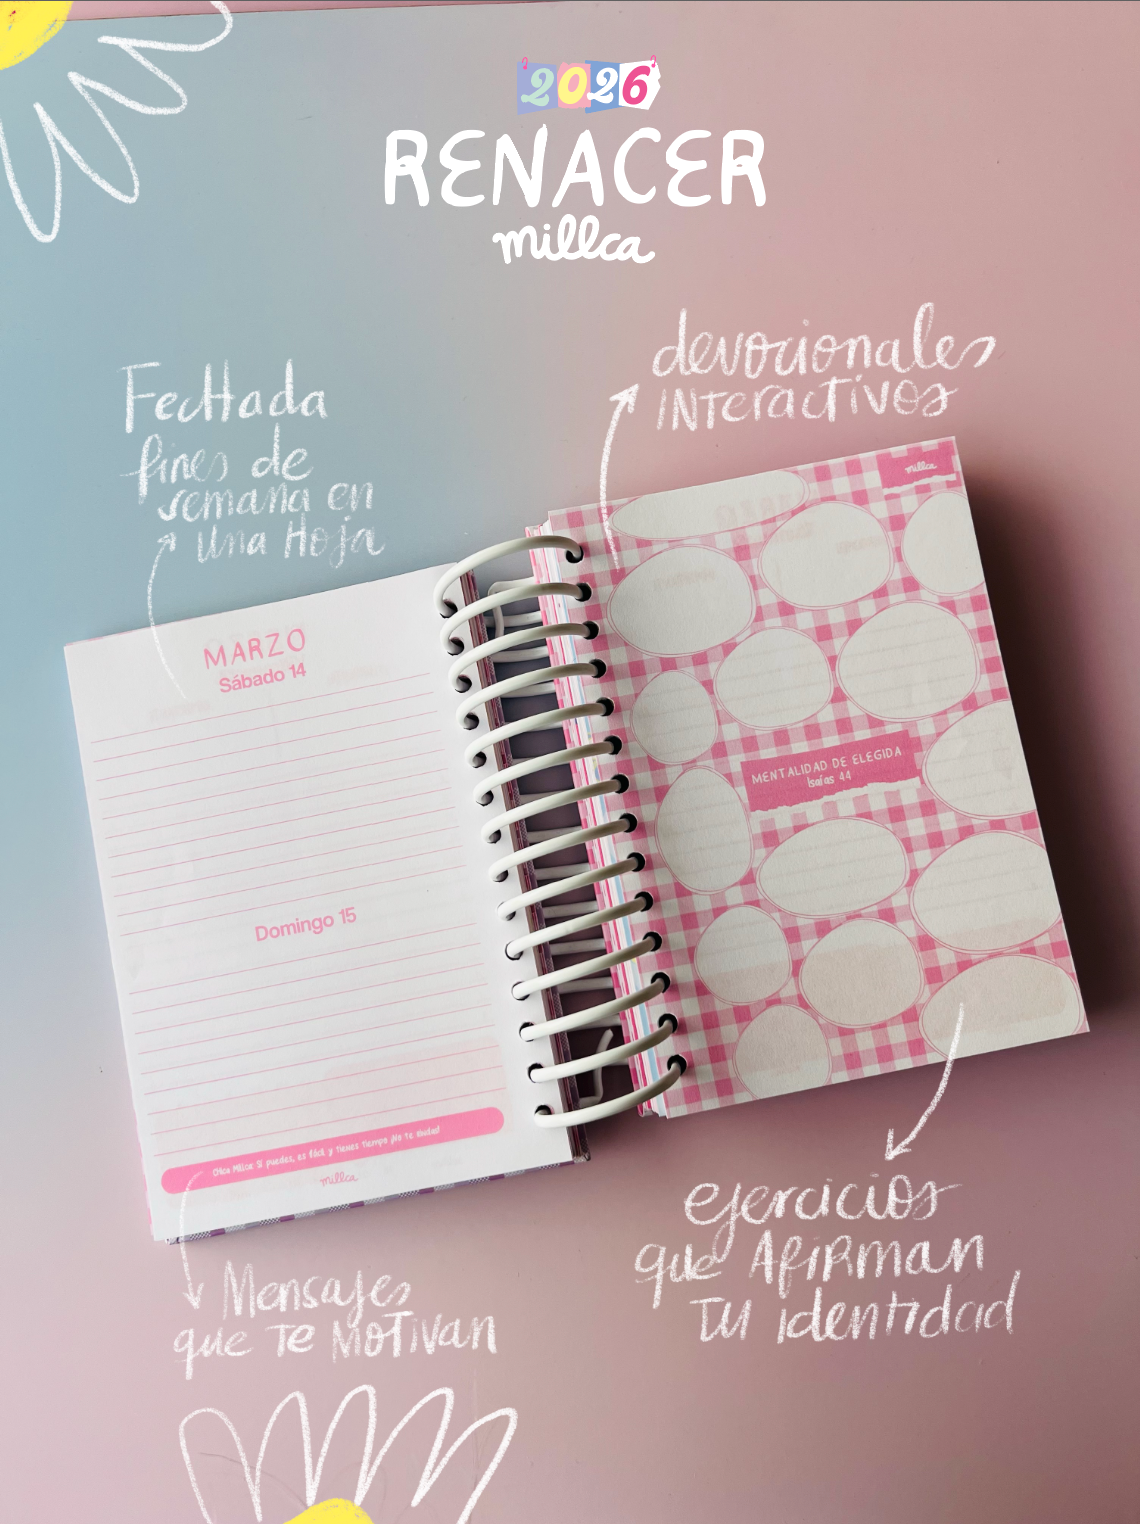 2026
RENACER
millca
devocionales
INTeractivos
FecHada
fines de
semana en
una Hoja
millca
MARZO
Sábado 14
MENTALIDAD DE ELEGIDA
Isaías 44
Domingo 15
Chica Millca: Si puedes, es fácil y tienes tiempo ¡No te rindas!
millca
ejercicios
que AfiRMan
TU identidad
Mensajes
que Te MoTivan